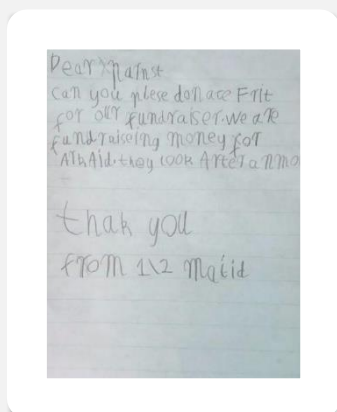 Dear
can you plese donace Frit
for our fundraiser. we are
fundraiseing money for
they look Arter
thak you
from 1\2 Majid